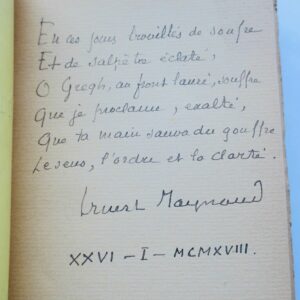 En ces jours brouillés de soufre
Et de salpêtre éclaté,
O Gregh, au front lauré, souffre
Que je proclame, exalté,
Que ta main sauva du gouffre
Le sens, l'ordre et la clarté.
Ernest Raynaud
XXVI – I – MCMXVIII.